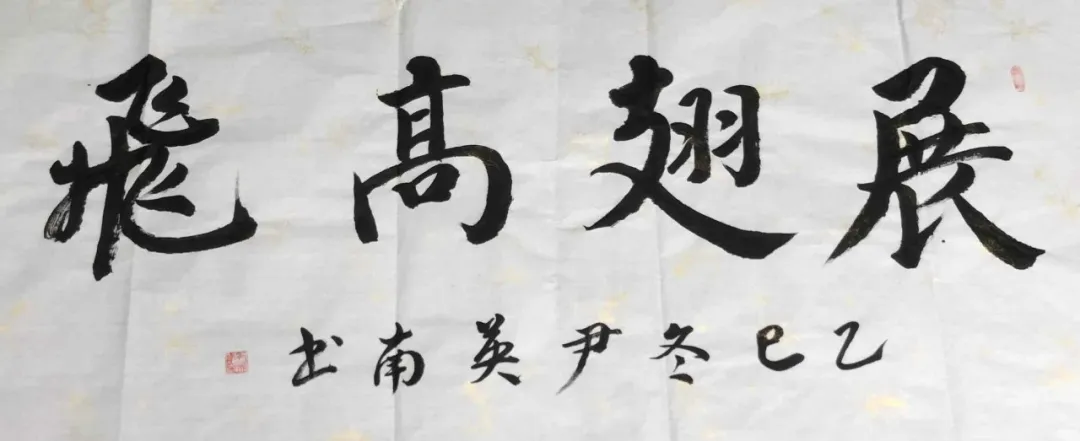 展翅高飛
乙巳冬尹英南书